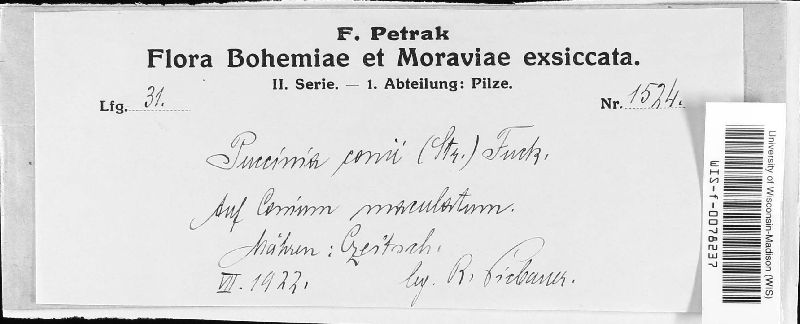 F. Petrak
Flora Bohemiae et Moraviae exsiccata.
II. Serie. — 1. Abteilung: Pilze.
Lfg. 31. Nr. 1524.
Puccinia conii (Str.) Fuck.
Auf Conium maculatum.
Mähren: Czeitsch.
VII. 1922. leg. R. Picbauer.
University of Wisconsin-Madison (WIS)
WIS-f-0078237